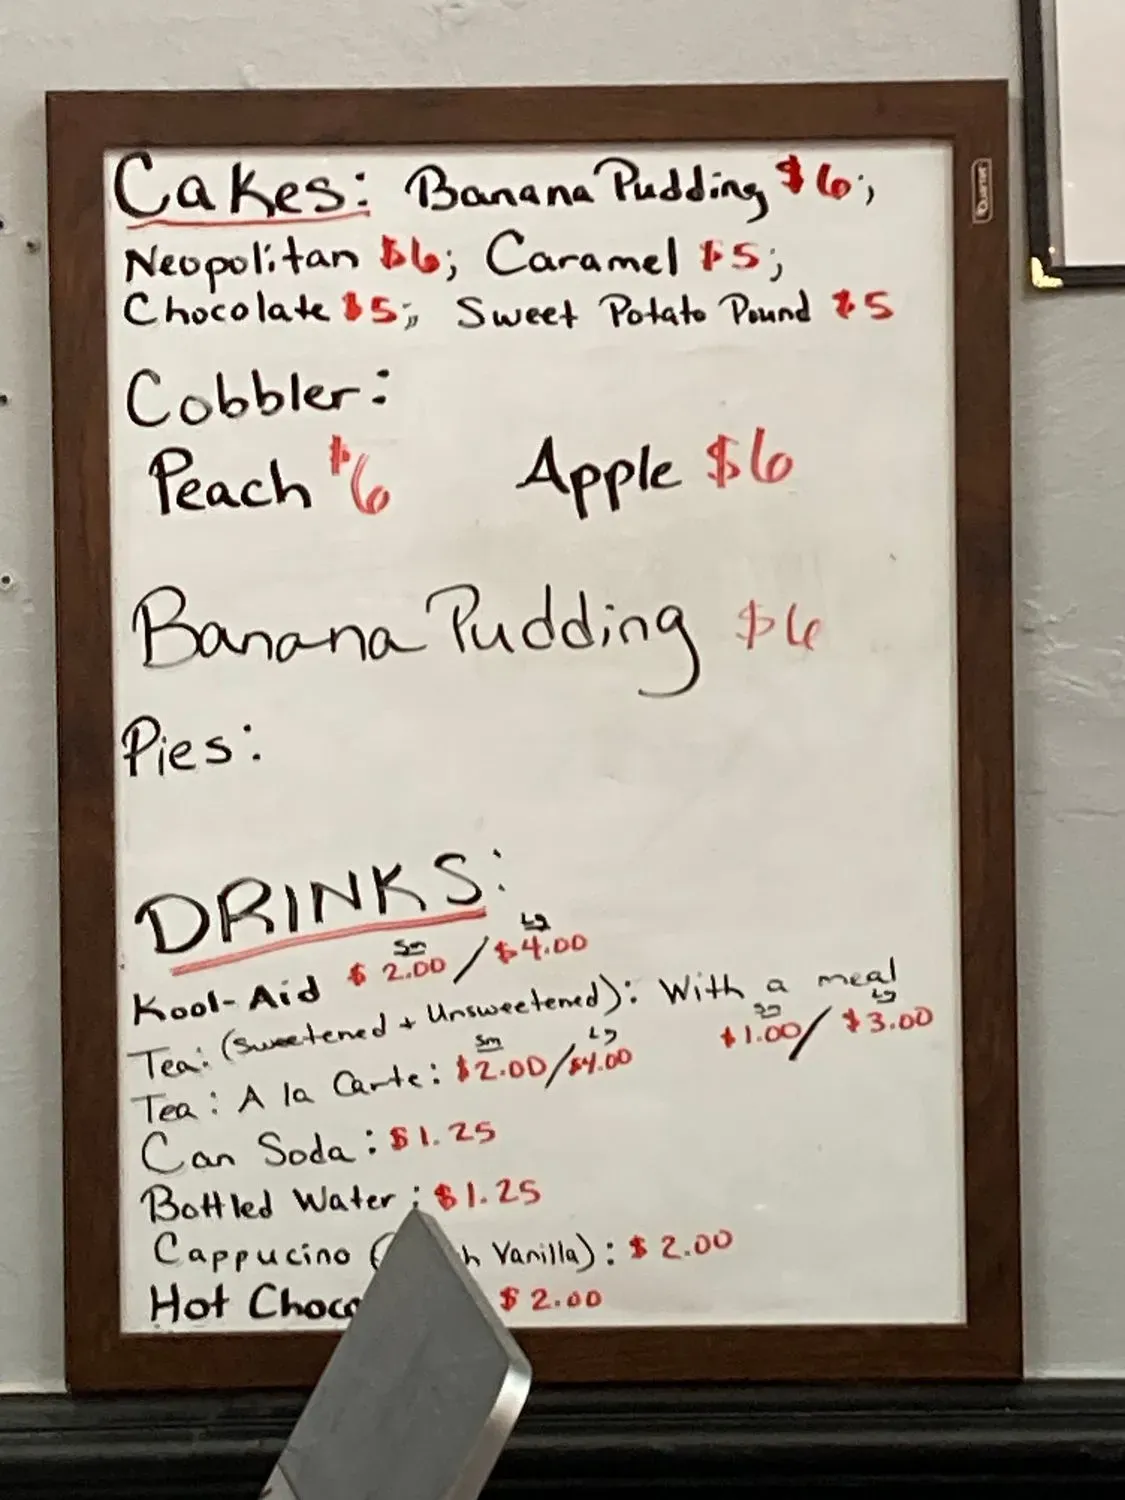 Cakes: Banana Pudding $6;
Neopolitan $6; Caramel $5;
Chocolate $5; Sweet Potato Pound $5
Cobbler:
Peach $6 Apple $6
Banana Pudding $6
Pies:
DRINKS:
Sm Lg
Kool-Aid $2.00/$4.00
Tea: (Sweetened + Unsweetened): With a meal
Sm Lg
$1.00/$3.00
Sm Lg
Tea: A la Carte: $2.00/$4.00
Can Soda: $1.25
Bottled Water: $1.25
Cappucino ( Vanilla): $2.00
Hot $2.00
Quartet